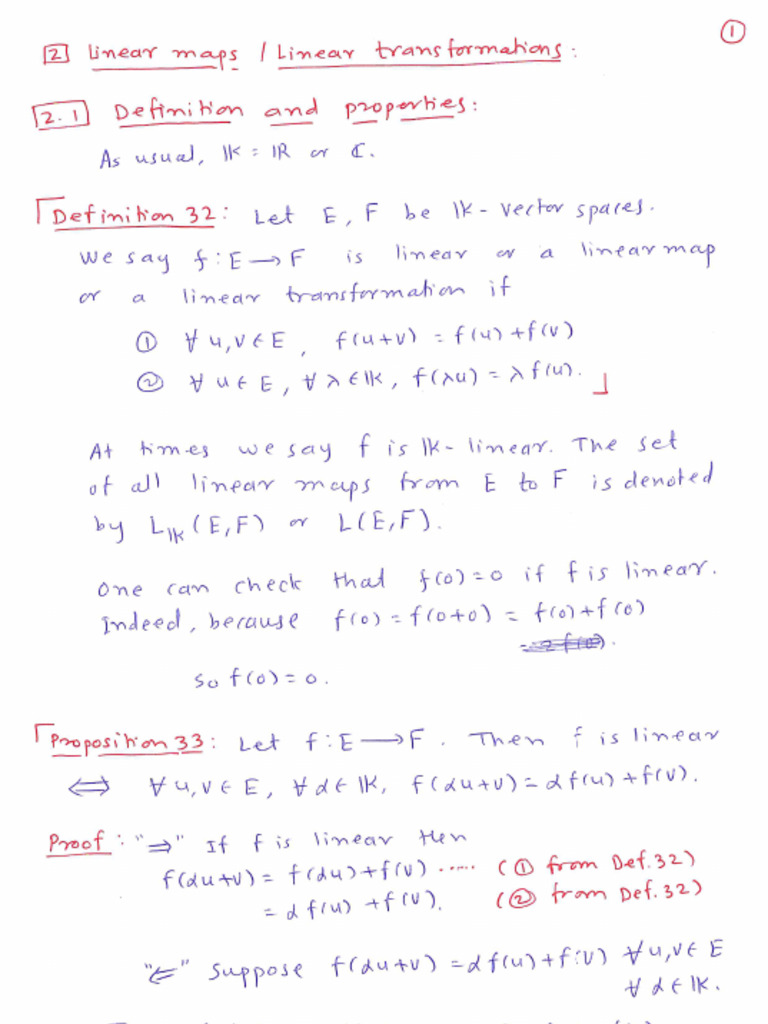 ①
2 Linear maps / Linear transformations:
2.1 Definition and properties:
As usual, 𝕂 = ℝ or ℂ.
Definition 32: Let E, F be 𝕂-vector spaces.
We say f: E ⟶ F is linear or a linear map
or a linear transformation if
① ∀ u,v ∈ E, f(u+v) = f(u)+f(v)
② ∀ u ∈ E, ∀ λ ∈ 𝕂, f(λu) = λ f(u).
At times we say f is 𝕂-linear. The set
of all linear maps from E to F is denoted
by L_𝕂(E,F) or L(E,F).
One can check that f(0)=0 if f is linear.
Indeed, because f(0) = f(0+0) = f(0)+f(0)
so f(0)=0.
Proposition 33: Let f: E ⟶ F. Then f is linear
⟺ ∀ u,v ∈ E, ∀ α ∈ 𝕂, f(αu+v) = αf(u)+f(v).
Proof: "⇒" If f is linear then
f(αu+v) = f(αu)+f(v) ..... (① from Def.32)
= αf(u)+f(v). (② from Def.32)
"⇐" Suppose f(αu+v) = αf(u)+f(v) ∀ u,v ∈ E
∀ α ∈ 𝕂.